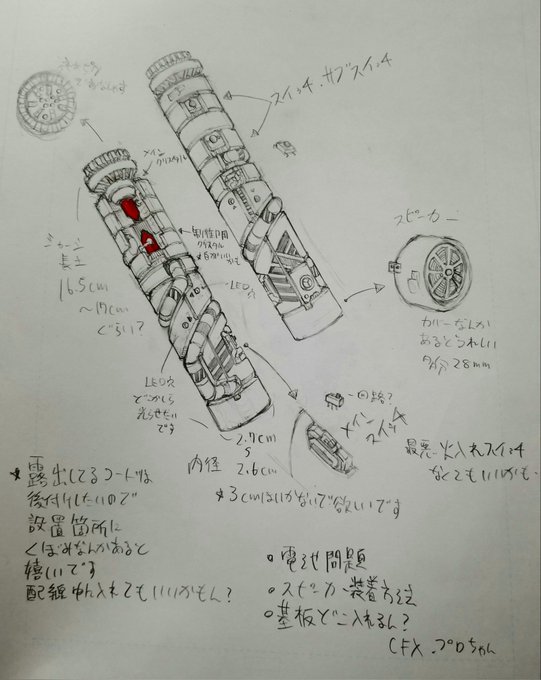 スイッチ、サブスイッチ
メイン
クリスタル
スピーカー
16.5cm
〜17cm
ぐらい?
LED穴
カバーなんか
あるとうれしい
多分28mm
LED穴
どっかしら
光らせたい
です
回路?
メイン
スイッチ
2.7cm
内径 2.6cm
最悪火入れスイッチ
なくてもいいかも.
*3cmはいかないで欲しいです
*露出してるコードは
後付けしたいので
設置箇所に
くぼみなんかあると
嬉しいです
配線中入れてもいいかもん?
電池問題
スピーカー装着方法
基板どこ入れるん?
CFX.プロちゃん